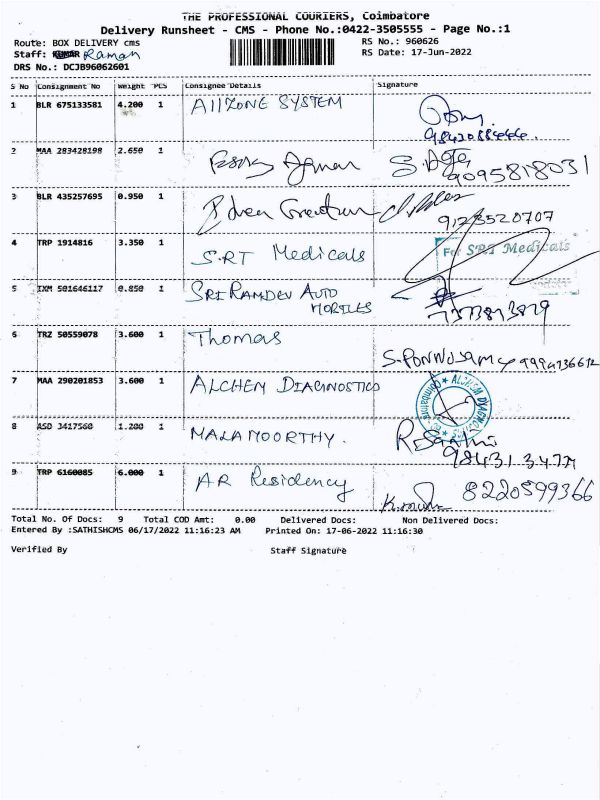 THE PROFESSIONAL COURIERS, Coimbatore
Delivery Runsheet - CMS - Phone No.:0422-3505555 - Page No.:1
Route: BOX DELIVERY cms
RS No.: 960626
Staff: Raman
RS Date: 17-Jun-2022
DRS No.: DCJB96062601
S No Consignment No Weight PCS Consignee Details Signature
1 BLR 675133581 4.200 1 AllZONE SYSTEM
2 MAA 283428198 2.650 1
9095818031
3 BLR 435257695 0.950 1
9123520707
4 TRP 1914816 3.350 1 S.RT Medicals For SRT Medicals
5 IXM 501646117 0.850 1 SRI RAMDEV AUTO
MOBILES
6 TRZ 50559078 3.600 1 Thomas
S.PONNUSAMY
7 MAA 290201853 3.600 1 ALCHEM DIAGNOSTICS
8 ASD 3417560 1.200 1 MALAMOORTHY.
9 TRP 6160085 6.000 1 AR Residency 8220599366
Total No. Of Docs: 9 Total COD Amt: 0.00 Delivered Docs: Non Delivered Docs:
Entered By :SATHISHCMS 06/17/2022 11:16:23 AM Printed On: 17-06-2022 11:16:30
Verified By Staff Signature